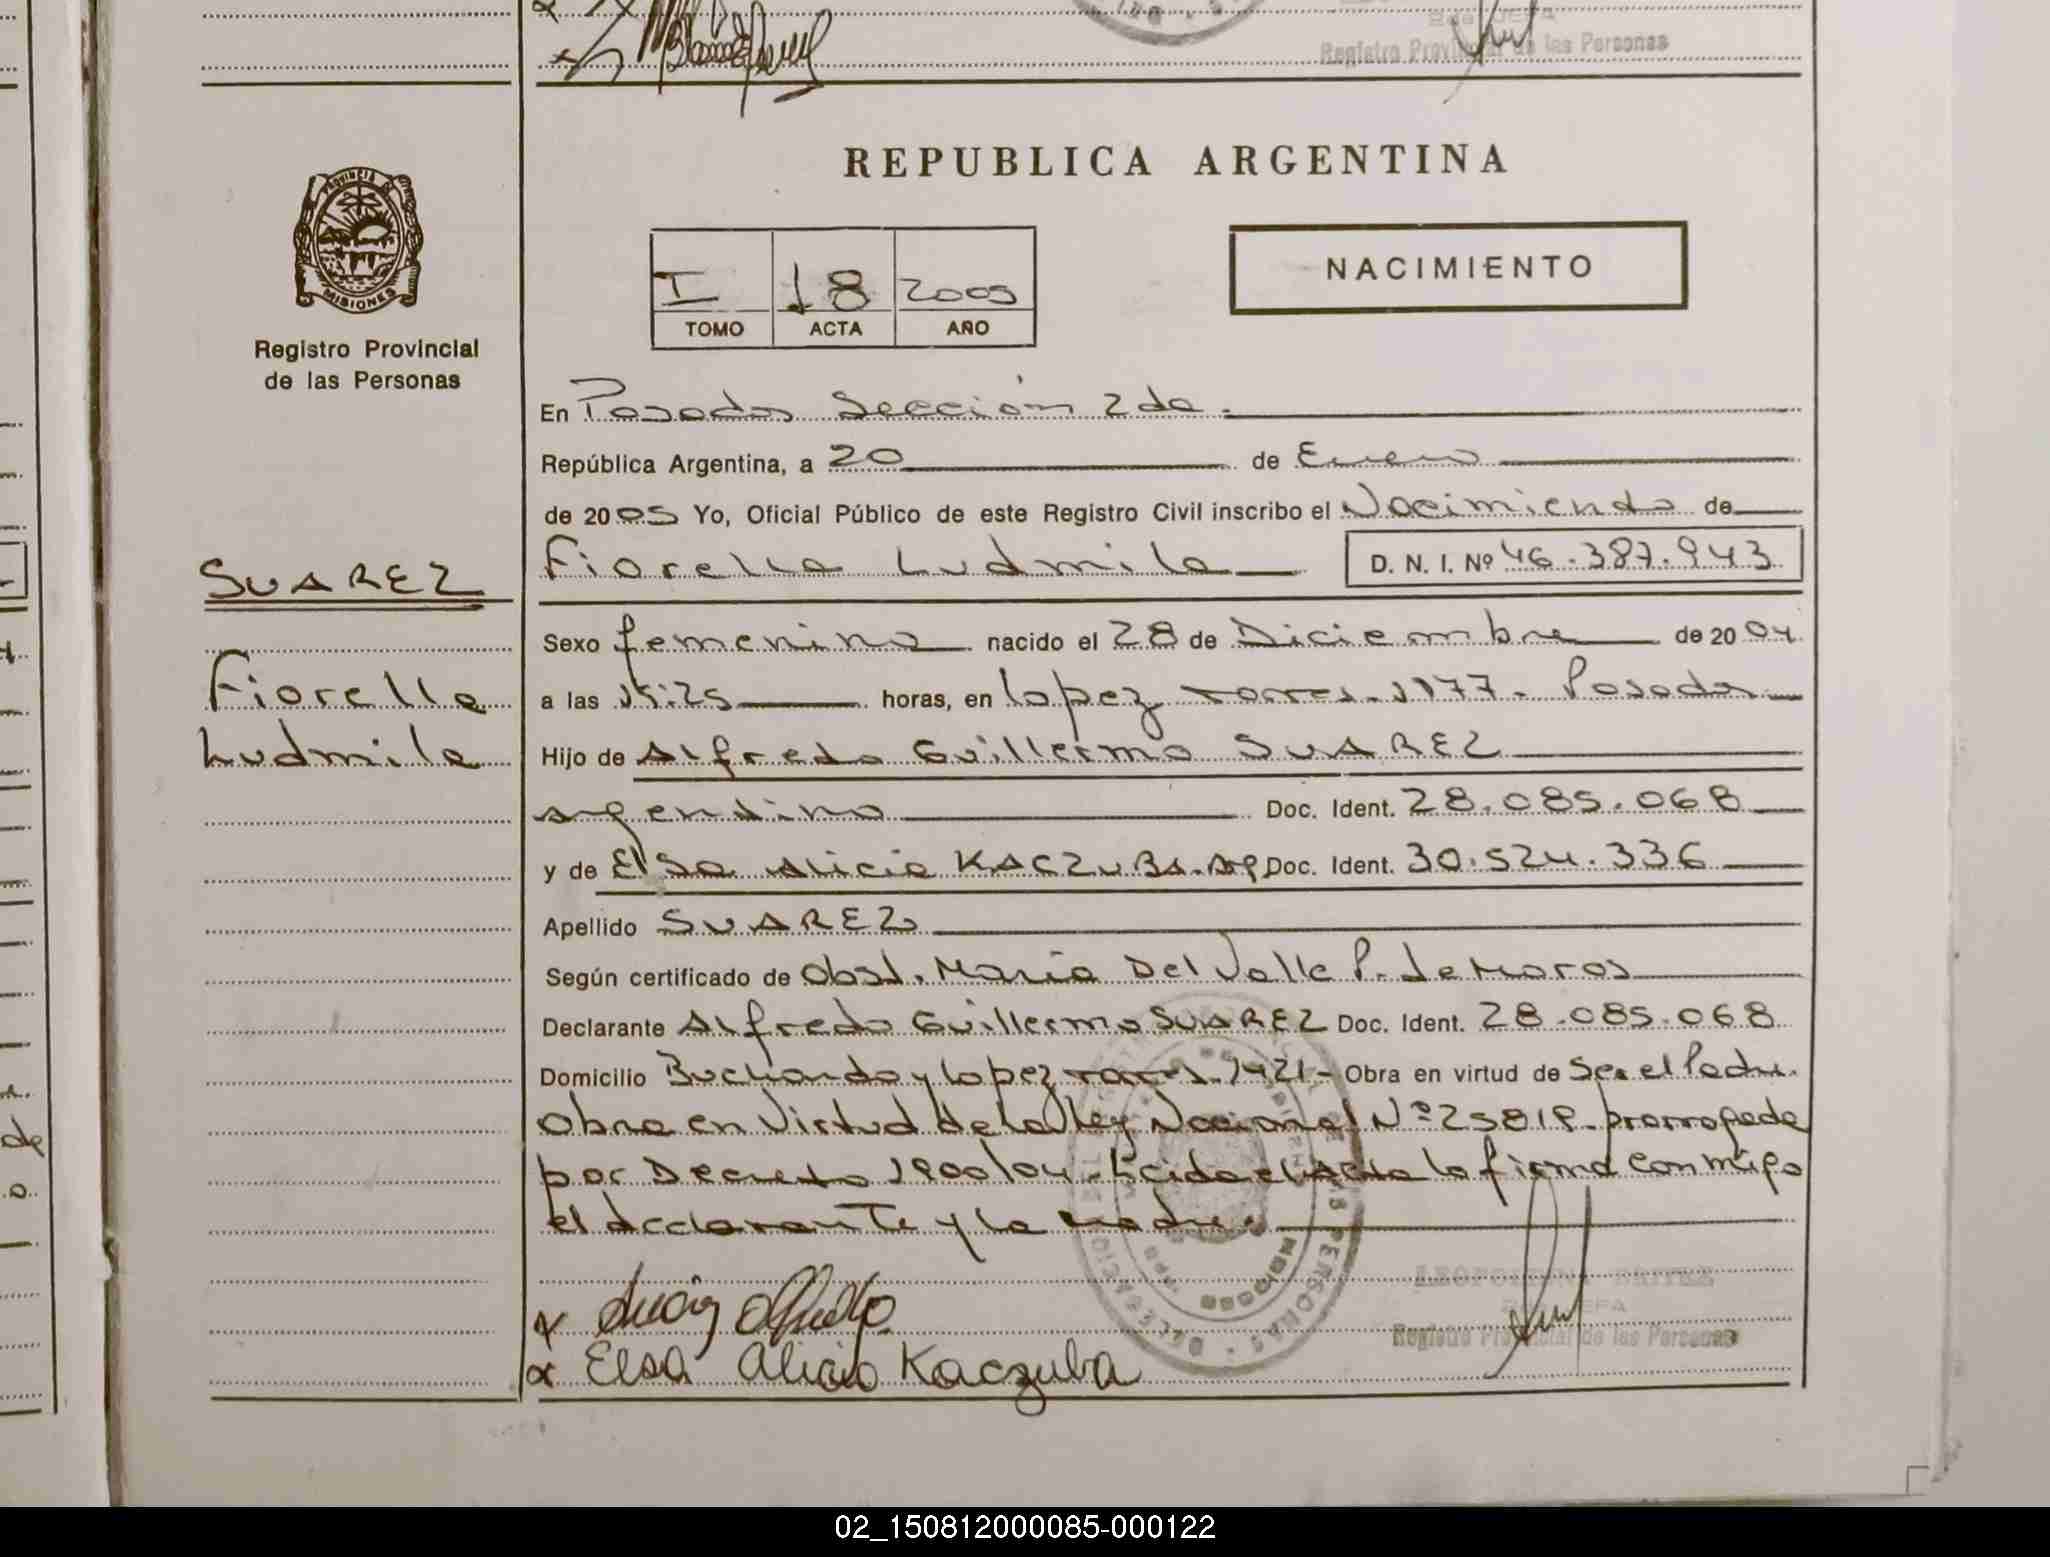 2da JEFA
Registro Provincial de las Personas
REPUBLICA ARGENTINA
PROVINCIA DE
MISIONES
I 18 2005
TOMO ACTA AÑO
NACIMIENTO
Registro Provincial
de las Personas
En Posadas Sección 2da.
República Argentina, a 20 de Enero
de 2005 Yo, Oficial Público de este Registro Civil inscribo el Nacimiento de
SUAREZ
Fiorella Ludmila D. N. I. Nº 46.387.943
Sexo femenino nacido el 28 de Diciembre de 2004
Fiorella
a las 15:25 horas, en Lopez Torres. 1177. Posadas
Ludmila
Hijo de Alfredo Guillermo SUAREZ
argentino Doc. Ident. 28.085.068
y de Elsa Alicia KACZUBA. Arg Doc. Ident. 30.524.336
Apellido SUAREZ
Según certificado de Obst. Maria Del Valle P. de Moros
Declarante Alfredo Guillermo SUAREZ Doc. Ident. 28.085.068
Domicilio Buchardo y Lopez Torres. 7421 - Obra en virtud de Ser el Padre.
Obra en Virtud de la Ley Nacional Nº 25819. prorrogada
por Decreto 1900/04. Leida el Acta la firma conmigo
el declarante y la madre.
Suarez Alfredo
Elsa Alicia Kaczuba
2da JEFA
Registro Provincial de las Personas
02_150812000085-000122